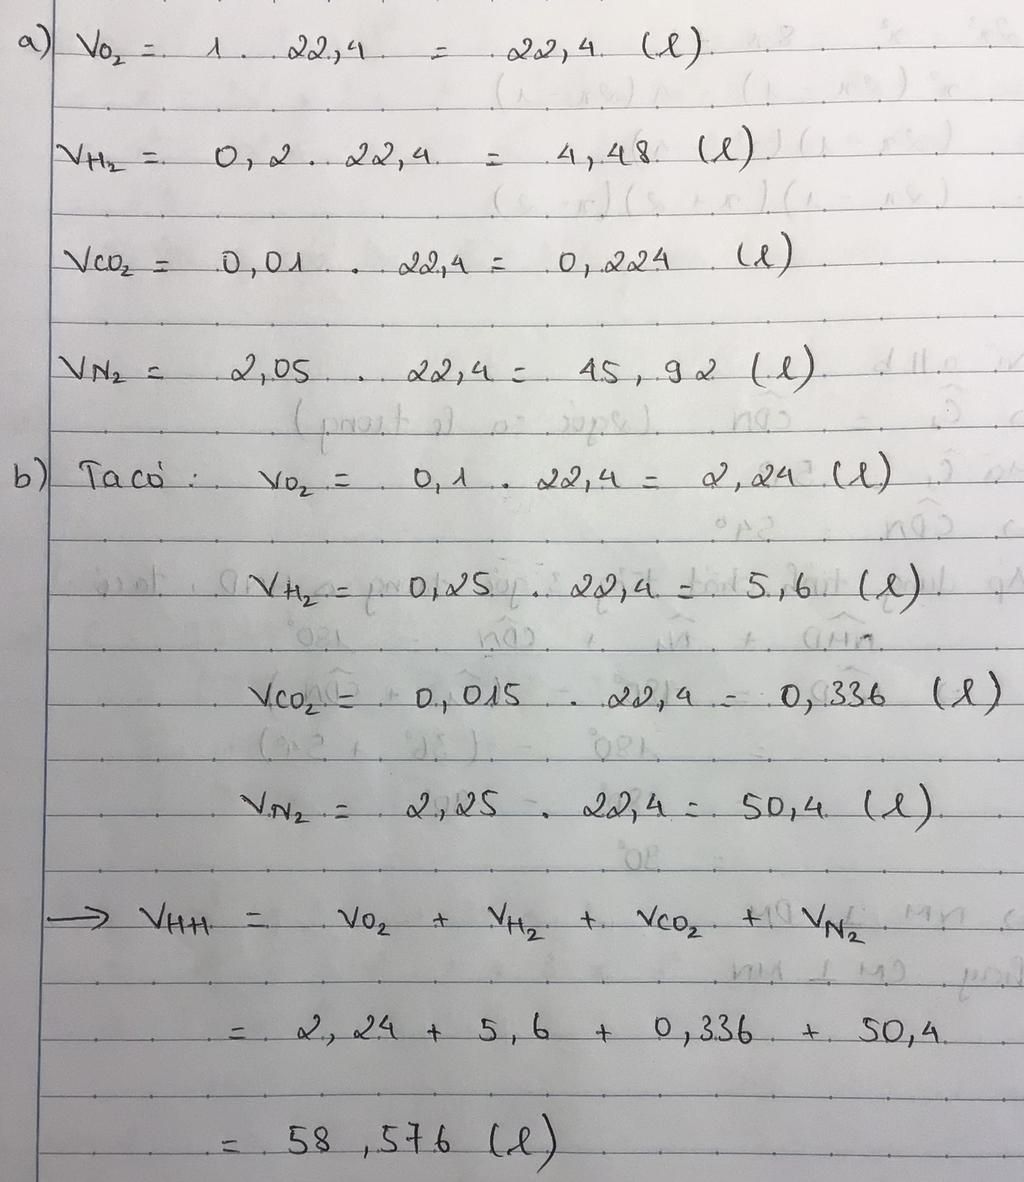 a) VO₂ = 1 . 22,4 = 22,4 (l)
VH₂ = 0,2 . 22,4 = 4,48 (l)
VCO₂ = 0,01 . 22,4 = 0,224 (l)
VN₂ = 2,05 . 22,4 = 45,92 (l)
b) Ta có : VO₂ = 0,1 . 22,4 = 2,24 (l)
VH₂ = 0,25 . 22,4 = 5,6 (l)
VCO₂ = 0,015 . 22,4 = 0,336 (l)
VN₂ = 2,25 . 22,4 = 50,4 (l)
→ VHH = VO₂ + VH₂ + VCO₂ + VN₂
= 2,24 + 5,6 + 0,336 + 50,4
= 58,576 (l)